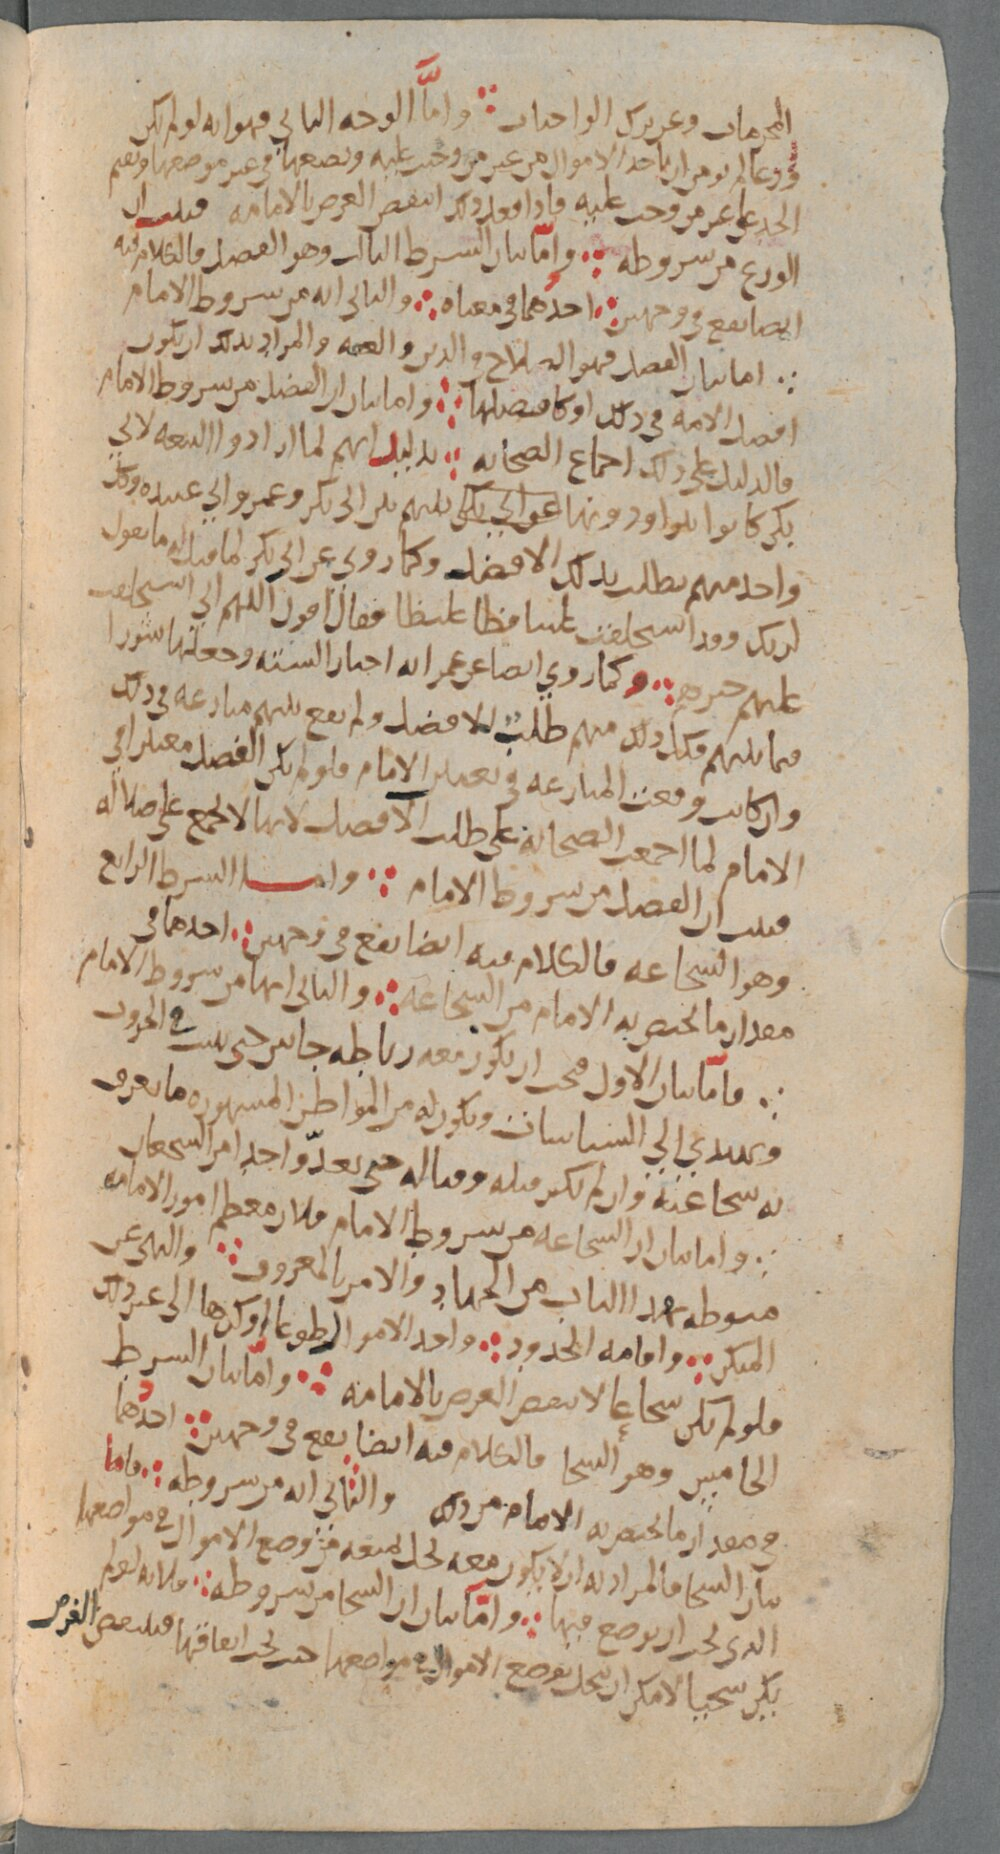 المحرمات وعن ترك الواجبات ∴ وامَّا الوجه الثاني فهو انه لو لم يكن
ورعا لم يومن ان ياخذ الاموال من غير من وجبت عليه ويضعها في غير موضعها ويقيم
الحد على غير من وجب عليه فاذا فعل ذلك انتقض الغرض بالامامه فثبت ان
الورع من شروطه ∴ وامَّا بيان الشرط الثالث وهو الفضل فالكلام فيه
ايضا يقع في وجهين ∴ احدُهما في معناه ∴ والثاني انه من شروط الامام
∴ اما بيان الفضل فهو الصلاح في الدين والعفه والمراد بذلك ان يكون
افضل الامه في ذلك او كافضلها ∴ واما بيان ان الفضل من شروط الامام
فالدليل على ذلك اجماع الصحابه ∴ بدليل انهم لما ارادوا البيعه لابي
بكر كانوا يتراودونها بينهم بين ابي بكر وعمر وابي عبيده وكل
واحد منهم يطلب بذلك الافضل وكما روي عن ابي بكر لما قيل له ما تقول
لربك وقد استخلفت علينا فظا غليظا فقال اقول اللهم اني استخلفت
عليهم خيرهم ∴ وكما روي ايضا عن عمر انه اختار السته وجعلها شورا
فيما بينهم فكل ذلك منهم طلبٌ للافضل ولم يقع بينهم منازعه في ذلك
وان كانت وقعت المنازعه في تعيين الامام فلو لم يكن الفضل معتبرا في
الامام لما اجمعت الصحابه على طلب الافضل لانها لا تجمع على ضلاله
فثبت ان الفضل من شروط الامام ∴ وامـــا الشرط الرابع
وهو الشجاعه فالكلام فيه ايضا يقع في وجهين ∴ احدهما في
مقدار ما يختص به الامام من الشجاعه ∴ والثاني انها من شروط الامام
∴ فامّا بيان الاول فيجب ان يكون معه رباطه جاش حتى يثبت في الحروب
ويهتدي الى السياسات ويكون له من المواطن المشهوره ما يعرف
به شجاعته وان لم يكثر قتله وقتاله حتى يعدّ واحدا من الشجعان
∴ واما بيان ان الشجاعه من شروط الامام فلان معظم امور الامامه
منوطه بهذا الباب من الجهاد والامر بالمعروف ∴ والنهي عن
المنكر ∴ واقامه الحدود ∴ واخذ الاموال طوعا او كرها الى غير ذلك
فلو لم يكن شجاعا لانتقض الغرض بالامامه ∴ وامّا بيان الشرط
الخامس وهو السخا فالكلام فيه ايضا يقع في وجهين ∴ احدُهما
في مقدار ما يختص به الامام من ذلك والثاني انه من شروطه ∴ فاما
بيان السخا فالمراد به ان لا يكون معه بخل يمنعه من وضع الاموال في مواضعها
الذي يجب ان توضع فيها ∴ وامّا بيان ان السخا من شروطه ∴ فلانه لو لم
يكن سخيا لامكن ان يبخل بوضع الاموال في مواضعها حيث يجب انفاقها فينتقض الغرض